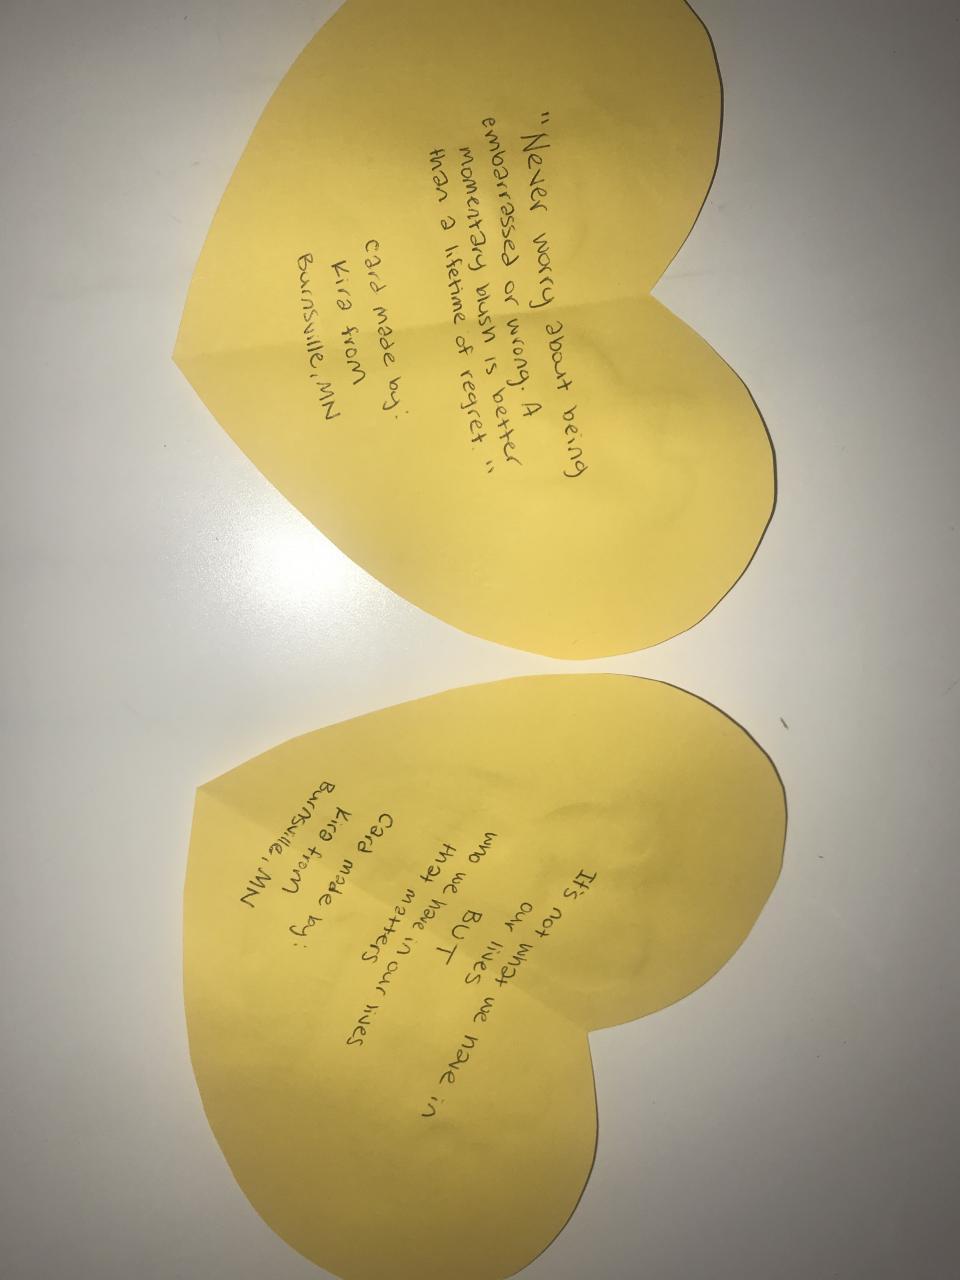 "Never worry about being
embarrassed or wrong. A
momentary blush is better
than a lifetime of regret."
Card made by:
Kira from
Burnsville, MN
It's not what we have in
our lives
BUT
who we have in our lives
that matters
Card made by:
Kira from
Burnsville, MN